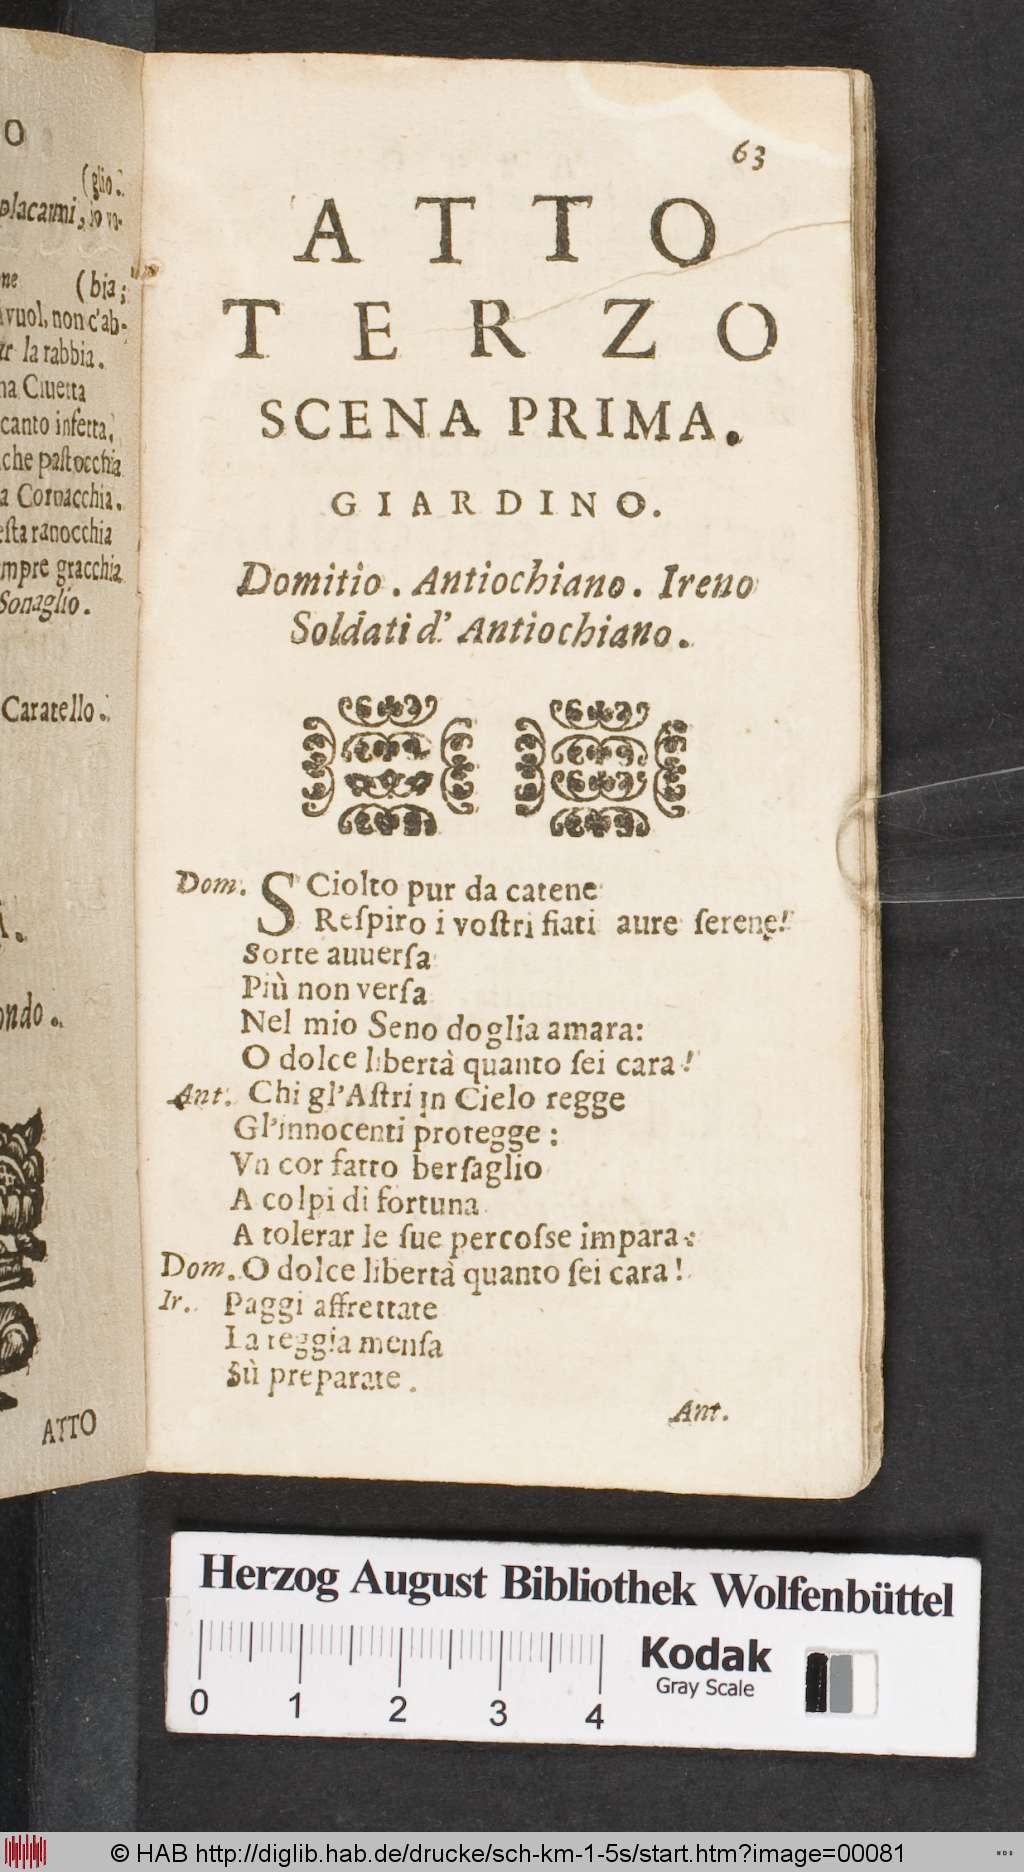 O
(glio.
placarmi, io vo-
(bia;
vuol, non c'ab-
la rabbia.
Ciuetta
canto infetta,
che pastocchia
a Cornacchia.
esta ranocchia
mpre gracchia
Sonaglio.
Caratello.
A.
ondo.
ATTO
63
ATTO
TERZO
SCENA PRIMA.
GIARDINO.
Domitio. Antiochiano. Ireno
Soldati d'Antiochiano.
Dom. SCiolto pur da catene
Reſpiro i voſtri fiati aure ſerene!
Sorte auuerſa
Più non verſa
Nel mio Seno doglia amara:
O dolce libertà quanto ſei cara!
Ant. Chi gl'Aſtri in Cielo regge
Gl'innocenti protegge:
Vn cor fatto berſaglio
A colpi di fortuna
A tolerar le ſue percoſse impara:
Dom. O dolce libertà quanto ſei cara!
Ir. Paggi affrettate
La reggia menſa
Sù preparate.
Ant.
Herzog August Bibliothek Wolfenbüttel
Kodak
Gray Scale
0 1 2 3 4
© HAB http://diglib.hab.de/drucke/sch-km-1-5s/start.htm?image=00081